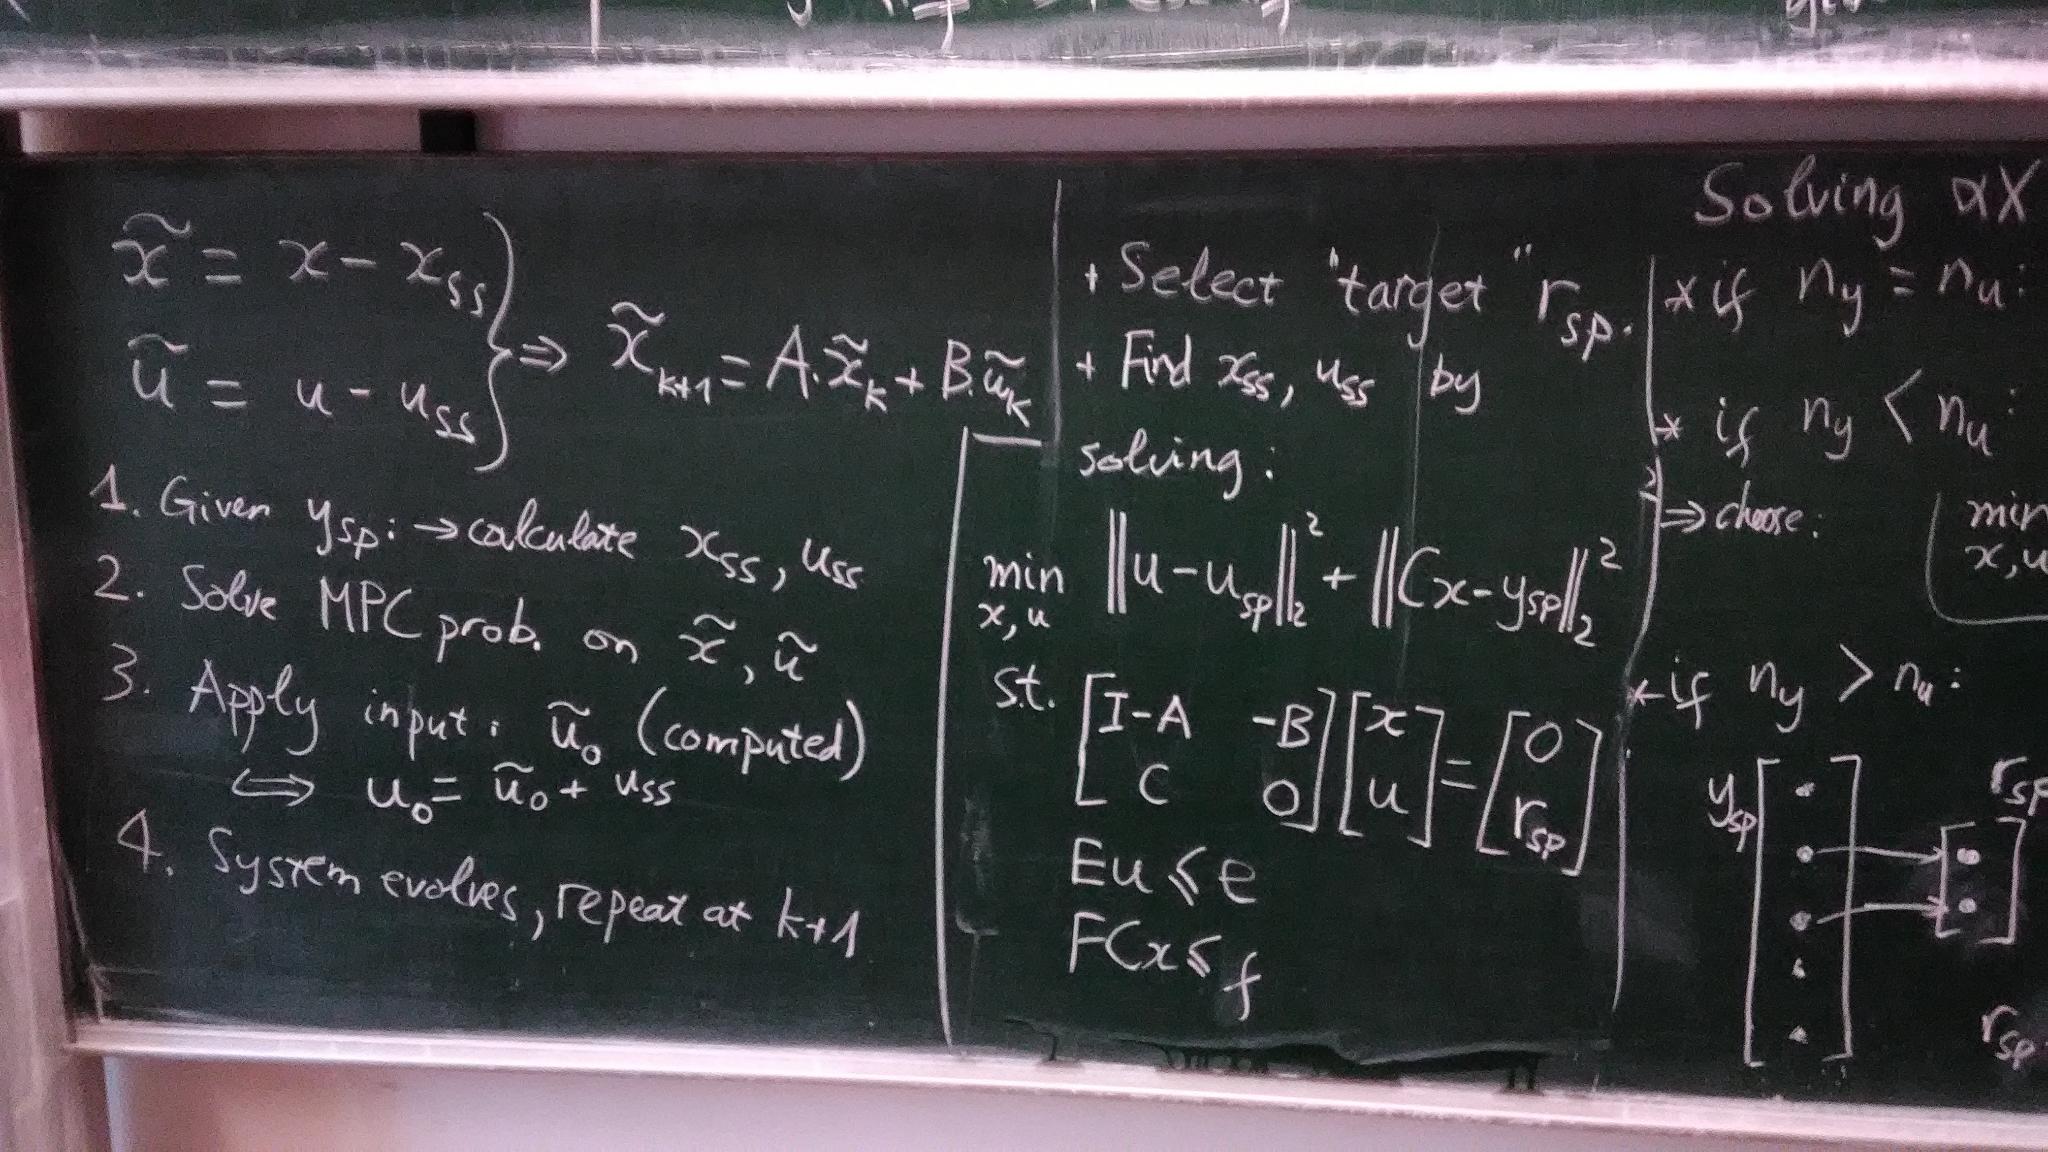 x̃ = x - xss
ũ = u - uss
} ⇒ x̃k+1 = A.x̃k + B.ũk
1. Given ysp: → calculate xss, uss
2. Solve MPC prob. on x̃, ũ
3. Apply input: ũ0 (computed)
⟺ u0 = ũ0 + uss
4. System evolves, repeat at k+1
+ Select "target" rsp.
+ Find xss, uss by
solving:
min ‖u - usp‖₂² + ‖Cx - ysp‖₂²
x, u
s.t. [I-A -B] [x] = [0]
[C 0] [u] = [rsp]
Eu ⩽ e
FCx ⩽ f
Solving
* if ny = nu:
* if ny < nu:
⇒ choose: min
x,u
* if ny > nu:
ysp
rsp
rsp